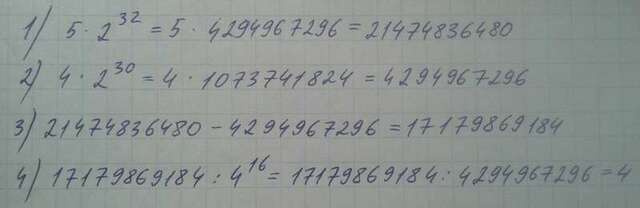 1) 5 · 2³² = 5 · 4294967296 = 21474836480
2) 4 · 2³⁰ = 4 · 1073741824 = 4294967296
3) 21474836480 - 4294967296 = 17179869184
4) 17179869184 : 4¹⁶ = 17179869184 : 4294967296 = 4